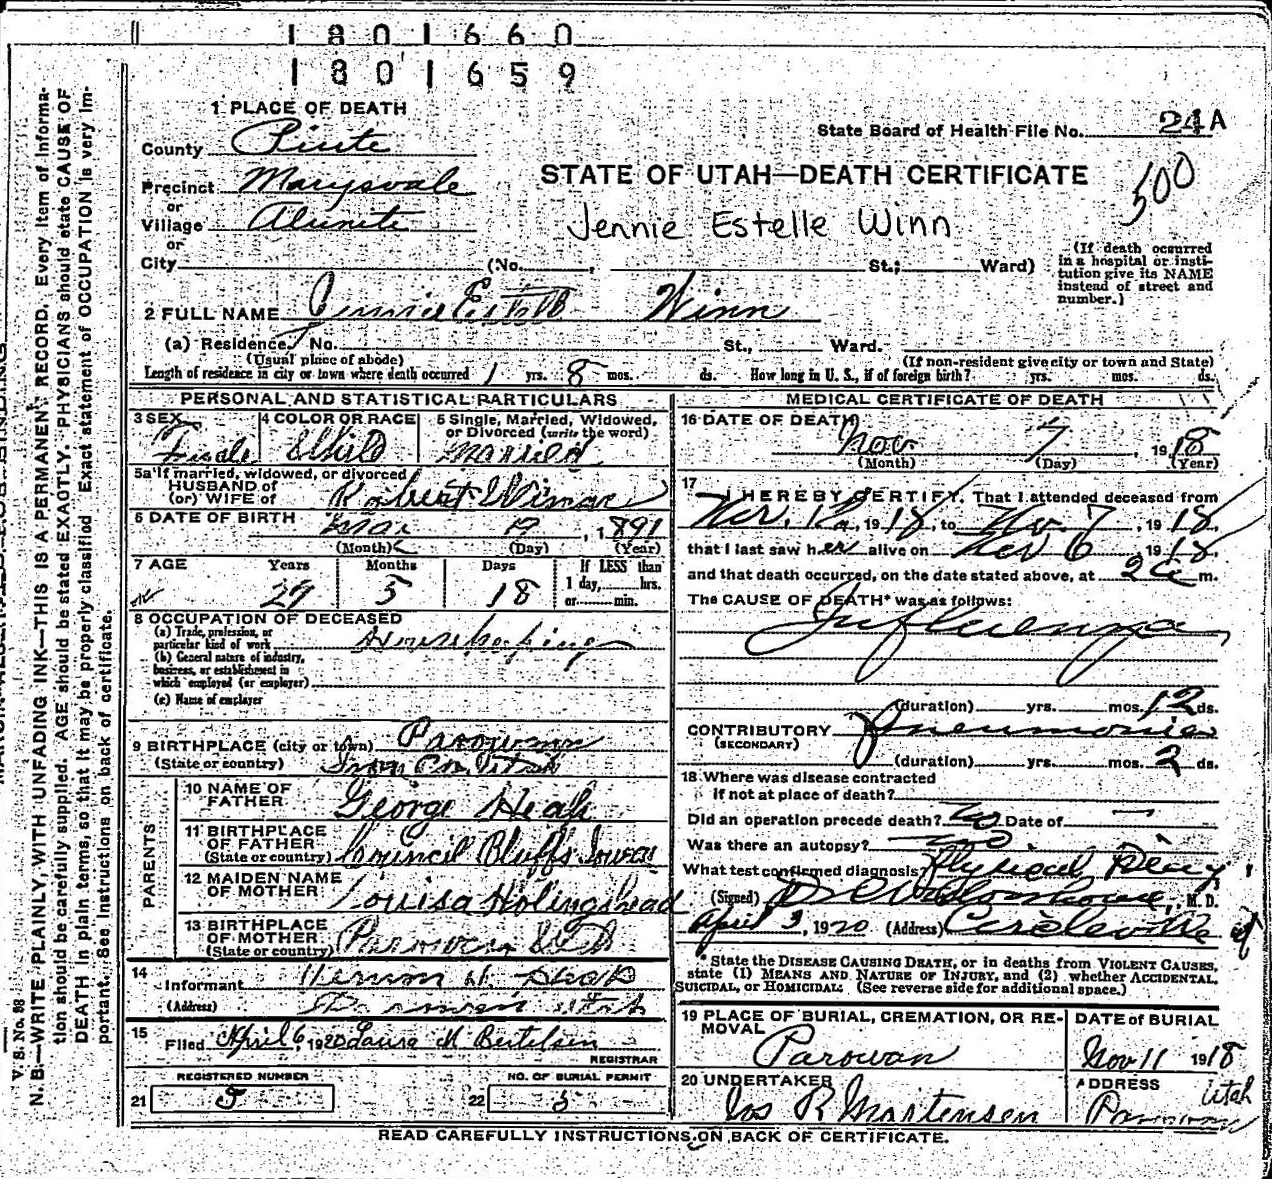 1801660
1801659
1 PLACE OF DEATH
State Board of Health File No. 24A
County Piute
STATE OF UTAH—DEATH CERTIFICATE
500
Precinct Marysvale
or
Village Alunite
Jennie Estelle Winn
or
City (No. , St.; Ward)
(If death occurred
in a hospital or insti-
tution give its NAME
instead of street and
number.)
2 FULL NAME Jennie Estelle Winn
(a) Residence. No. St., Ward.
(Usual place of abode) (If non-resident give city or town and State)
Length of residence in city or town where death occurred 1 yrs. 8 mos. ds. How long in U. S., if of foreign birth? yrs. mos. ds.
PERSONAL AND STATISTICAL PARTICULARS
3 SEX 4 COLOR OR RACE 5 Single, Married, Widowed,
or Divorced (write the word)
Married
5a If married, widowed, or divorced
HUSBAND OF
(or) WIFE of Robert
6 DATE OF BIRTH Mar 19, 1891
(Month) (Day) (Year)
7 AGE Years Months Days If LESS than
1 day, hrs.
or min.
29 5 18
8 OCCUPATION OF DECEASED
(a) Trade, profession, or
particular kind of work Housekeeping
(b) General nature of industry,
business, or establishment in
which employed (or employer)
(c) Name of employer
9 BIRTHPLACE (city or town) Parowan
(State or country) Iron Co. Utah
PARENTS
10 NAME OF
FATHER George Heap
11 BIRTHPLACE
OF FATHER
(State or country) Council Bluffs Iowa
12 MAIDEN NAME
OF MOTHER Louisa Holingshead
13 BIRTHPLACE
OF MOTHER
(State or country) Parowan Utah
14
Informant
(Address) Parowan Utah
15
Filed April 6, 1920 Laura M Bertelsen
REGISTRAR
REGISTERED NUMBER NO. OF BURIAL PERMIT
21 5 22 5
MEDICAL CERTIFICATE OF DEATH
16 DATE OF DEATH
Nov 7 1918
(Month) (Day) (Year)
17
I HEREBY CERTIFY, That I attended deceased from
1918, to Nov. 7, 1918
that I last saw her alive on Nov 6 1918,
and that death occurred, on the date stated above, at 2 a m.
The CAUSE OF DEATH* was as follows:
Influenza
(duration) yrs. mos. 12 ds.
CONTRIBUTORY Pneumonia
(SECONDARY)
(duration) yrs. mos. 2 ds.
18 Where was disease contracted
if not at place of death?
Did an operation precede death? No Date of —
Was there an autopsy? no
What test confirmed diagnosis? Physical
(Signed) M. D.
April 3, 1920 (Address) Circleville
* State the DISEASE CAUSING DEATH, or in deaths from VIOLENT CAUSES,
state (1) MEANS AND NATURE OF INJURY, and (2) whether ACCIDENTAL,
SUICIDAL, or HOMICIDAL. (See reverse side for additional space.)
19 PLACE OF BURIAL, CREMATION, OR RE-
MOVAL
Parowan
DATE of BURIAL
Nov 11 1918
20 UNDERTAKER
Jos R Mortensen
ADDRESS
Parowan Utah
READ CAREFULLY INSTRUCTIONS ON BACK OF CERTIFICATE.
V. S. No. 98
N. B—WRITE PLAINLY, WITH UNFADING INK—THIS IS A PERMANENT RECORD. Every item of informa-
tion should be carefully supplied. AGE should be stated EXACTLY. PHYSICIANS should state CAUSE OF
DEATH in plain terms, so that it may be properly classified. Exact statement of OCCUPATION is very im-
portant. See instructions on back of certificate.